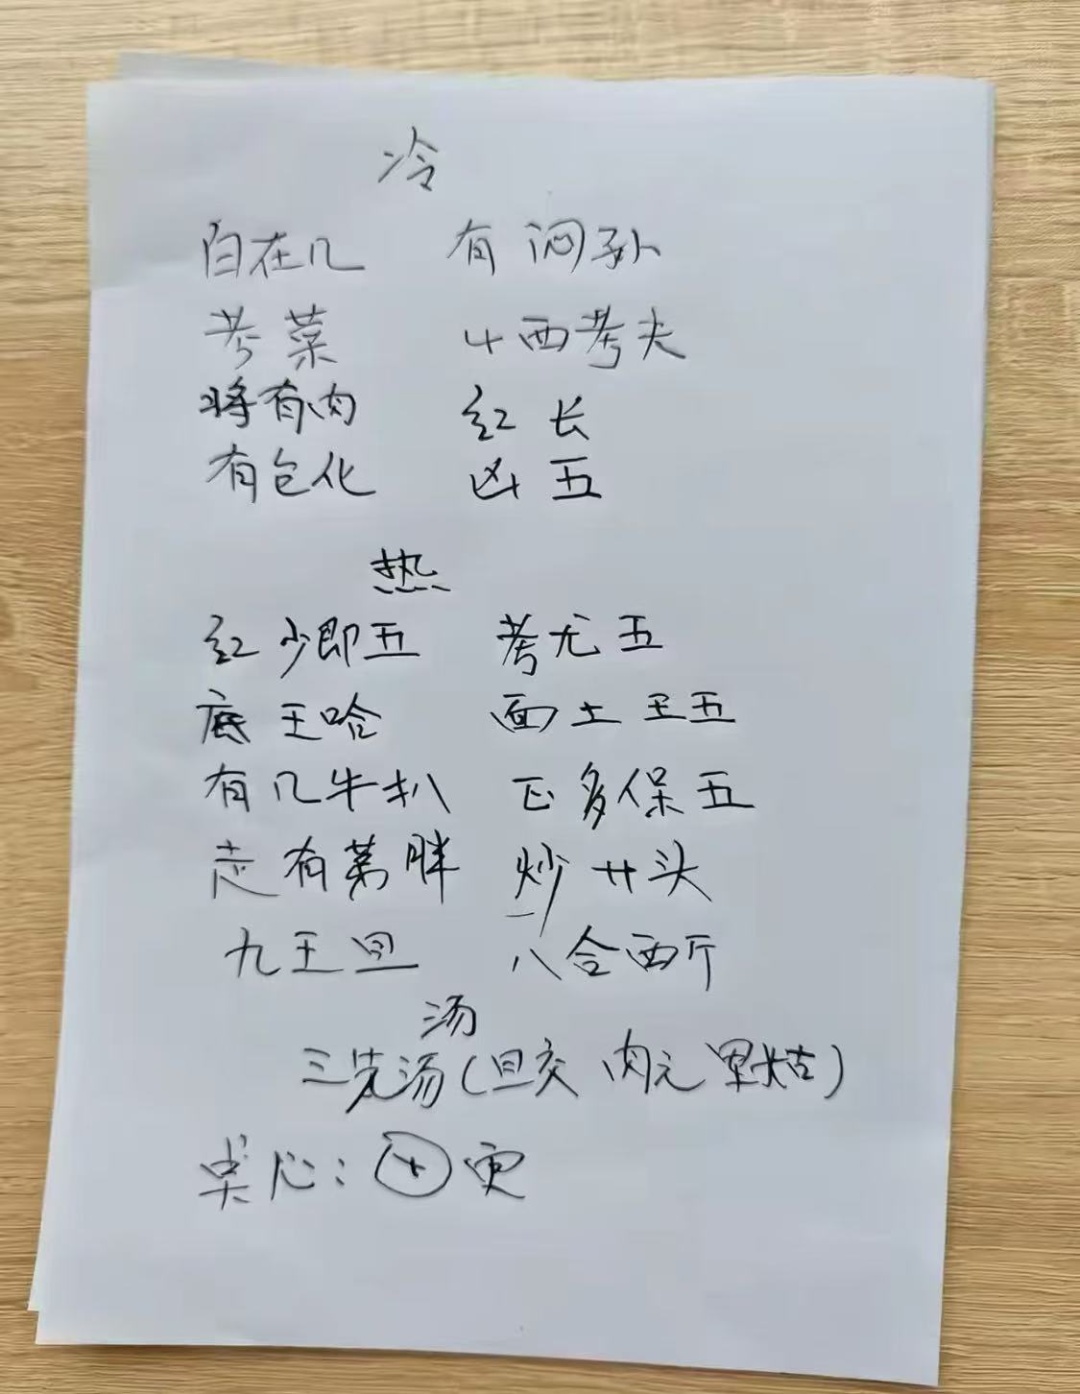 冷
白在几 有闷孙
考菜 4西考夫
将有肉 红长
有包化 凶五
热
红少即五 考尤五
底王哈 面土王五
有几牛扒 正多保五
志有第胖 炒廿头
九王旦 八合西斤
汤
三先汤(旦交 肉元 里炶)
心: 十 更